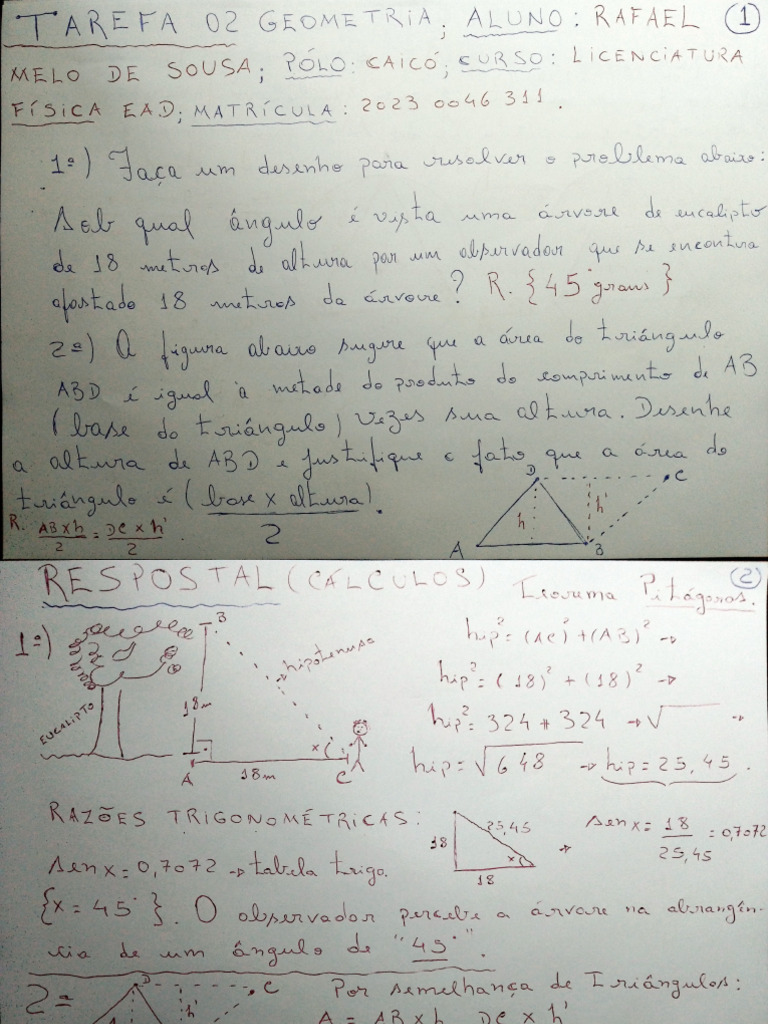 TAREFA 02 GEOMETRIA; ALUNO: RAFAEL 1
MELO DE SOUSA; PÓLO: CAICÓ; CURSO: LICENCIATURA
FÍSICA EAD; MATRÍCULA: 2023 0046 311.
1ª) Faça um desenho para resolver o problema abaixo:
Sob qual ângulo é vista uma árvore de eucalipto
de 18 metros de altura por um observador que se encontra
afastado 18 metros da árvore? R. {45° graus}
2ª) A figura abaixo sugere que a área do triângulo
ABD é igual à metade do produto do comprimento de AB
(base do triângulo) vezes sua altura. Desenhe
a altura de ABD e justifique o fato que a área do
triângulo é (base x altura).
2
R. AB x h / 2 = DC x h' / 2
D C
h h'
A B
RESPOSTAL (CÁLCULOS) Teorema Pitágoras. 2
1ª)
B
hipotenusa
18m
EUCALIPTO
x
A 18m C
hip² = (AC)² + (AB)² →
hip² = (18)² + (18)² →
hip² = 324 + 324 → √ →
hip = √648 → hip = 25,45.
RAZÕES TRIGONOMÉTRICAS:
18 25,45 x
18
→ sen x = 18 / 25,45 = 0,7072
sen x = 0,7072 → tabela trigo.
{x = 45°}. O observador percebe a árvore na abrangên-
cia de um ângulo de "45°".
2ª D C
h'
Por semelhança de Triângulos:
A = AB x h DC x h'